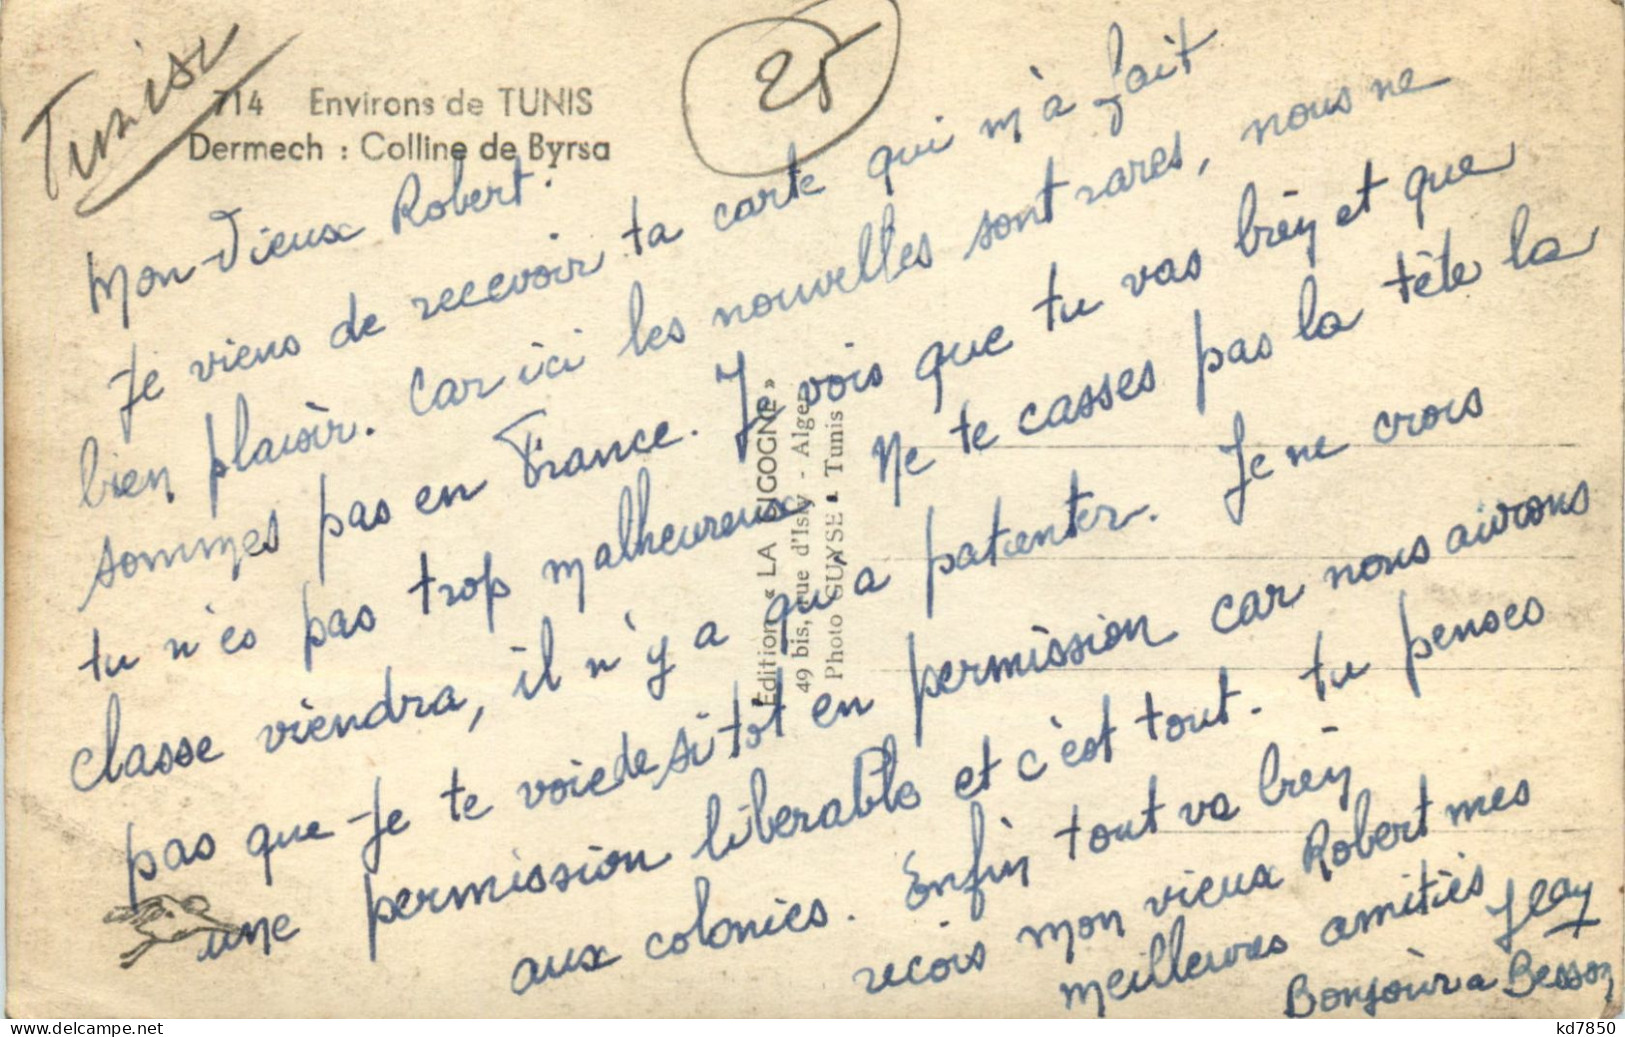 Tunisi
25
714 Environs de TUNIS
Dermech : Colline de Byrsa
Mon Vieux Robert.
Je viens de recevoir ta carte qui m'à fait
bien plaisir. Car ici les nouvelles sont rares, nous ne
sommes pas en France. Je vois que tu vas bien et que
tu n'es pas trop malheureux Ne te casses pas la tête la
classe viendra, il n'y a qu'a patienter. Je ne crois
pas que je te voie de sitot en permission car nous aurons
une permission liberable et c'est tout. tu penses
aux colonies. Enfin tout va bien
recois mon vieux Robert mes
meilleures amitiés Jean
Bonjour a Besson
Edition « LA CIGOGNE »
49 bis, rue d'Isly - Alger
Photo GUYSE - Tunis
www.delcampe.net
kd7850